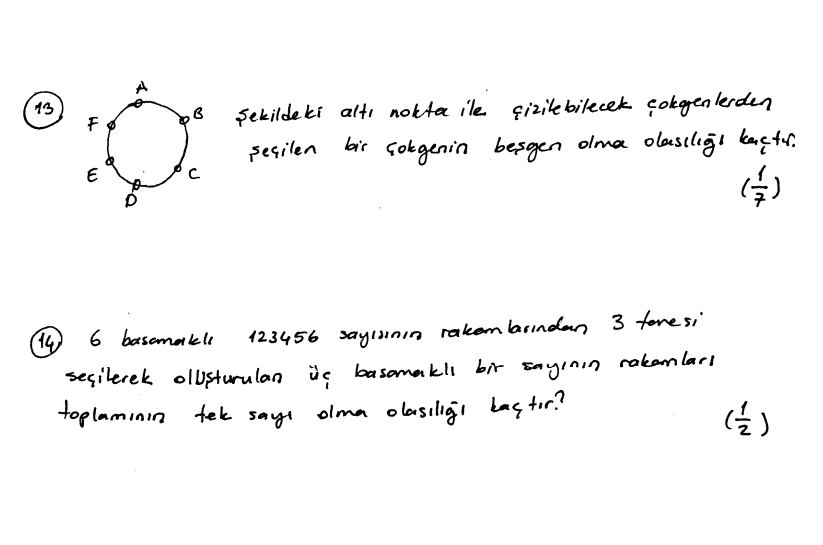 13
A
B
F
E
C
D
Şekildeki altı nokta ile çizilebilecek çokgenlerden
seçilen bir çokgenin beşgen olma olasılığı kaçtır.
(1/7)
14 6 basamaklı 123456 sayısının rakamlarından 3 tanesi
seçilerek oluşturulan üç basamaklı bir sayının rakamları
toplamının tek sayı olma olasılığı kaçtır?
(1/2)